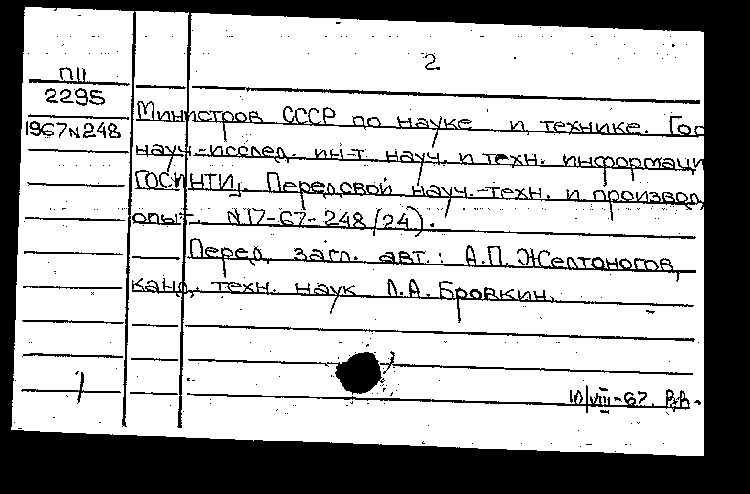 2
П11
2295
1967 N 248
Министров СССР по науке и технике. Гос
науч.-исслед. ин-т науч. и техн. информаци
ГОСИНТИ. Передовой науч.-техн. и производ
опыт. N 17-67-248/24).
Перед загл. авт.: А.П. Желтоногов,
канд. техн. наук Л.А. Бровкин.
10/VIII-67.